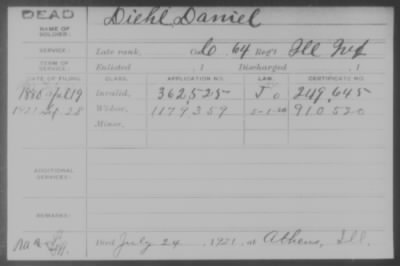 DEAD
Diehl Daniel
NAME OF
SOLDIER:
SERVICE:
Late rank, Co. 64 Reg't Ill Inf
TERM OF
SERVICE:
Enlisted , 1 Discharged , 1
DATE OF FILING.
CLASS.
APPLICATION NO.
LAW.
CERTIFICATE NO.
Invalid, 362,525 249,645
1921 28 Widow, 1179,359 5-1-20 910,520
Minor,
ADDITIONAL
SERVICES:
REMARKS:
Died July 24, 1921, at Athens, Ill.